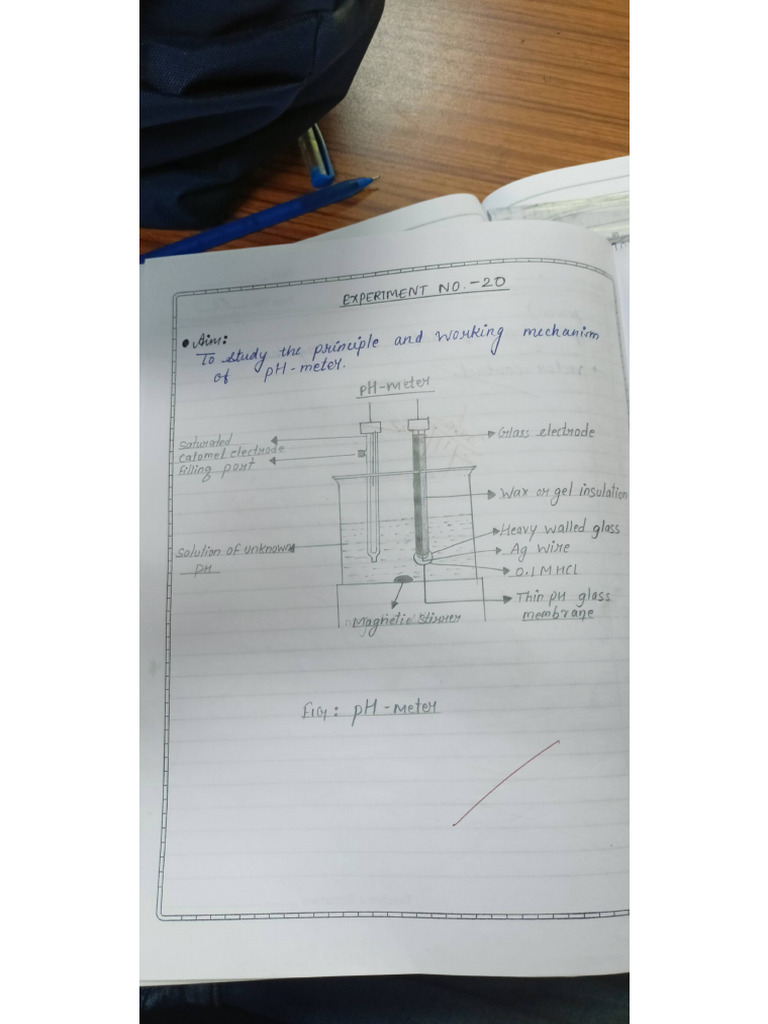 EXPERIMENT NO.-20
• Aim:
To study the principle and working mechanism
of pH-meter.
pH-meter
Saturated
calomel electrode
filling port
Glass electrode
Wax or gel insulation
Solution of unknown
pH
Heavy walled glass
Ag wire
0.1 M HCl
Thin pH glass
membrane
Magnetic Stirrer
Fig: pH-meter